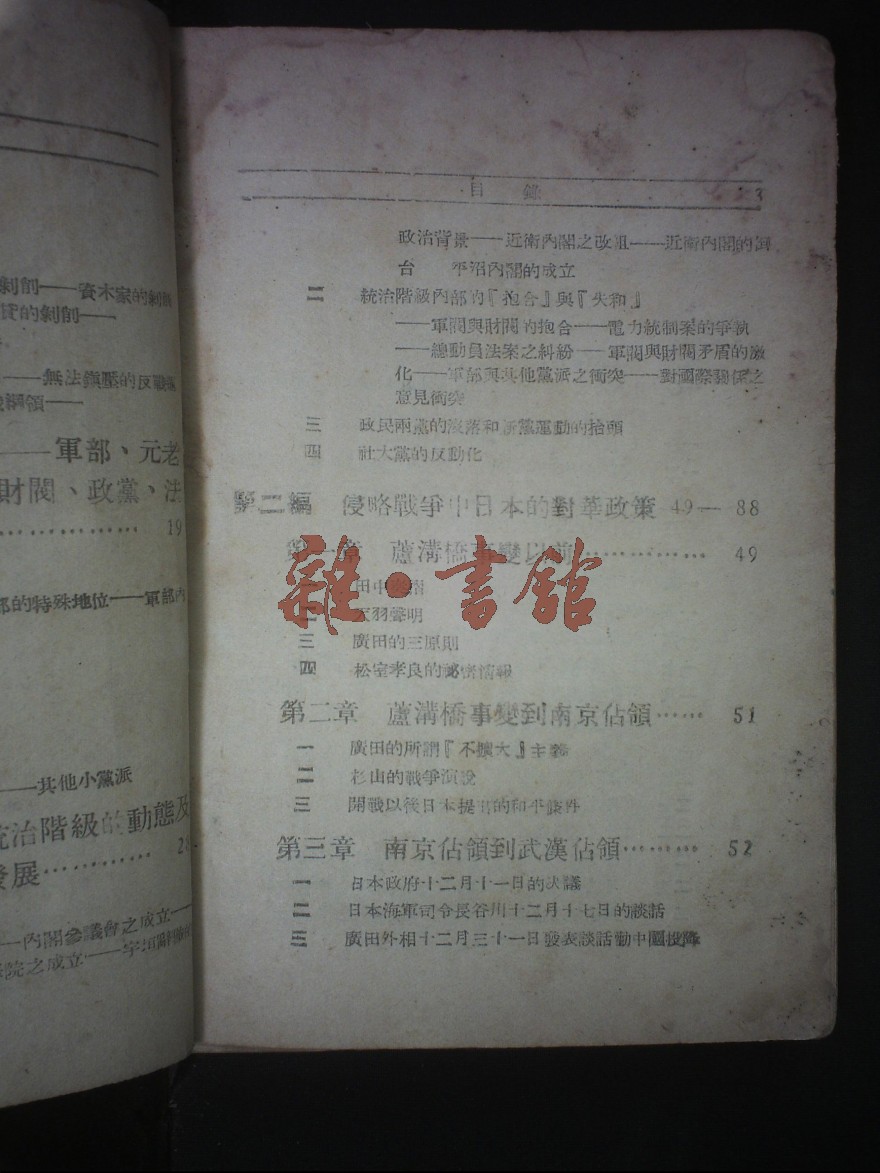 剝削——資本家的剝削
的剝削——
——無法鎮壓的反戰
綱領——
——軍部、元老
財閥、政黨、法
……………… 19
部的特殊地位——軍部內
——其他小黨派
統治階級的動態及
發展…………
——內閣參議會之成立——
院之成立——宇垣辭職
目 錄 3
政治背景——近衛內閣之改組——近衛內閣的
台 平沼內閣的成立
二 統治階級內部的『抱合』與『失和』
——軍閥與財閥的抱合——電力統制案的爭執
——總動員法案之糾紛——軍閥與財閥矛盾的激
化——軍部與其他黨派之衝突——對國際關係之
意見衝突
三 政民兩黨的沒落和新黨運動的抬頭
四 社大黨的反動化
第二編 侵略戰爭中日本的對華政策 49—88
第一章 蘆溝橋事變以前……………… 49
一 田中奏摺
二 天羽聲明
三 廣田的三原則
四 松室孝良的祕密情報
第二章 蘆溝橋事變到南京佔領…… 51
一 廣田的所謂『不擴大』主義
二 杉山的戰爭演說
三 開戰以後日本提出的和平條件
第三章 南京佔領到武漢佔領……… 52
一 日本政府十二月十一日的決議
二 日本海軍司令長谷川十二月十七日的談話
三 廣田外相十二月三十一日發表談話勸中國投降
雜·書館